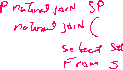 P natural join SP
natural join (
select S#
From S